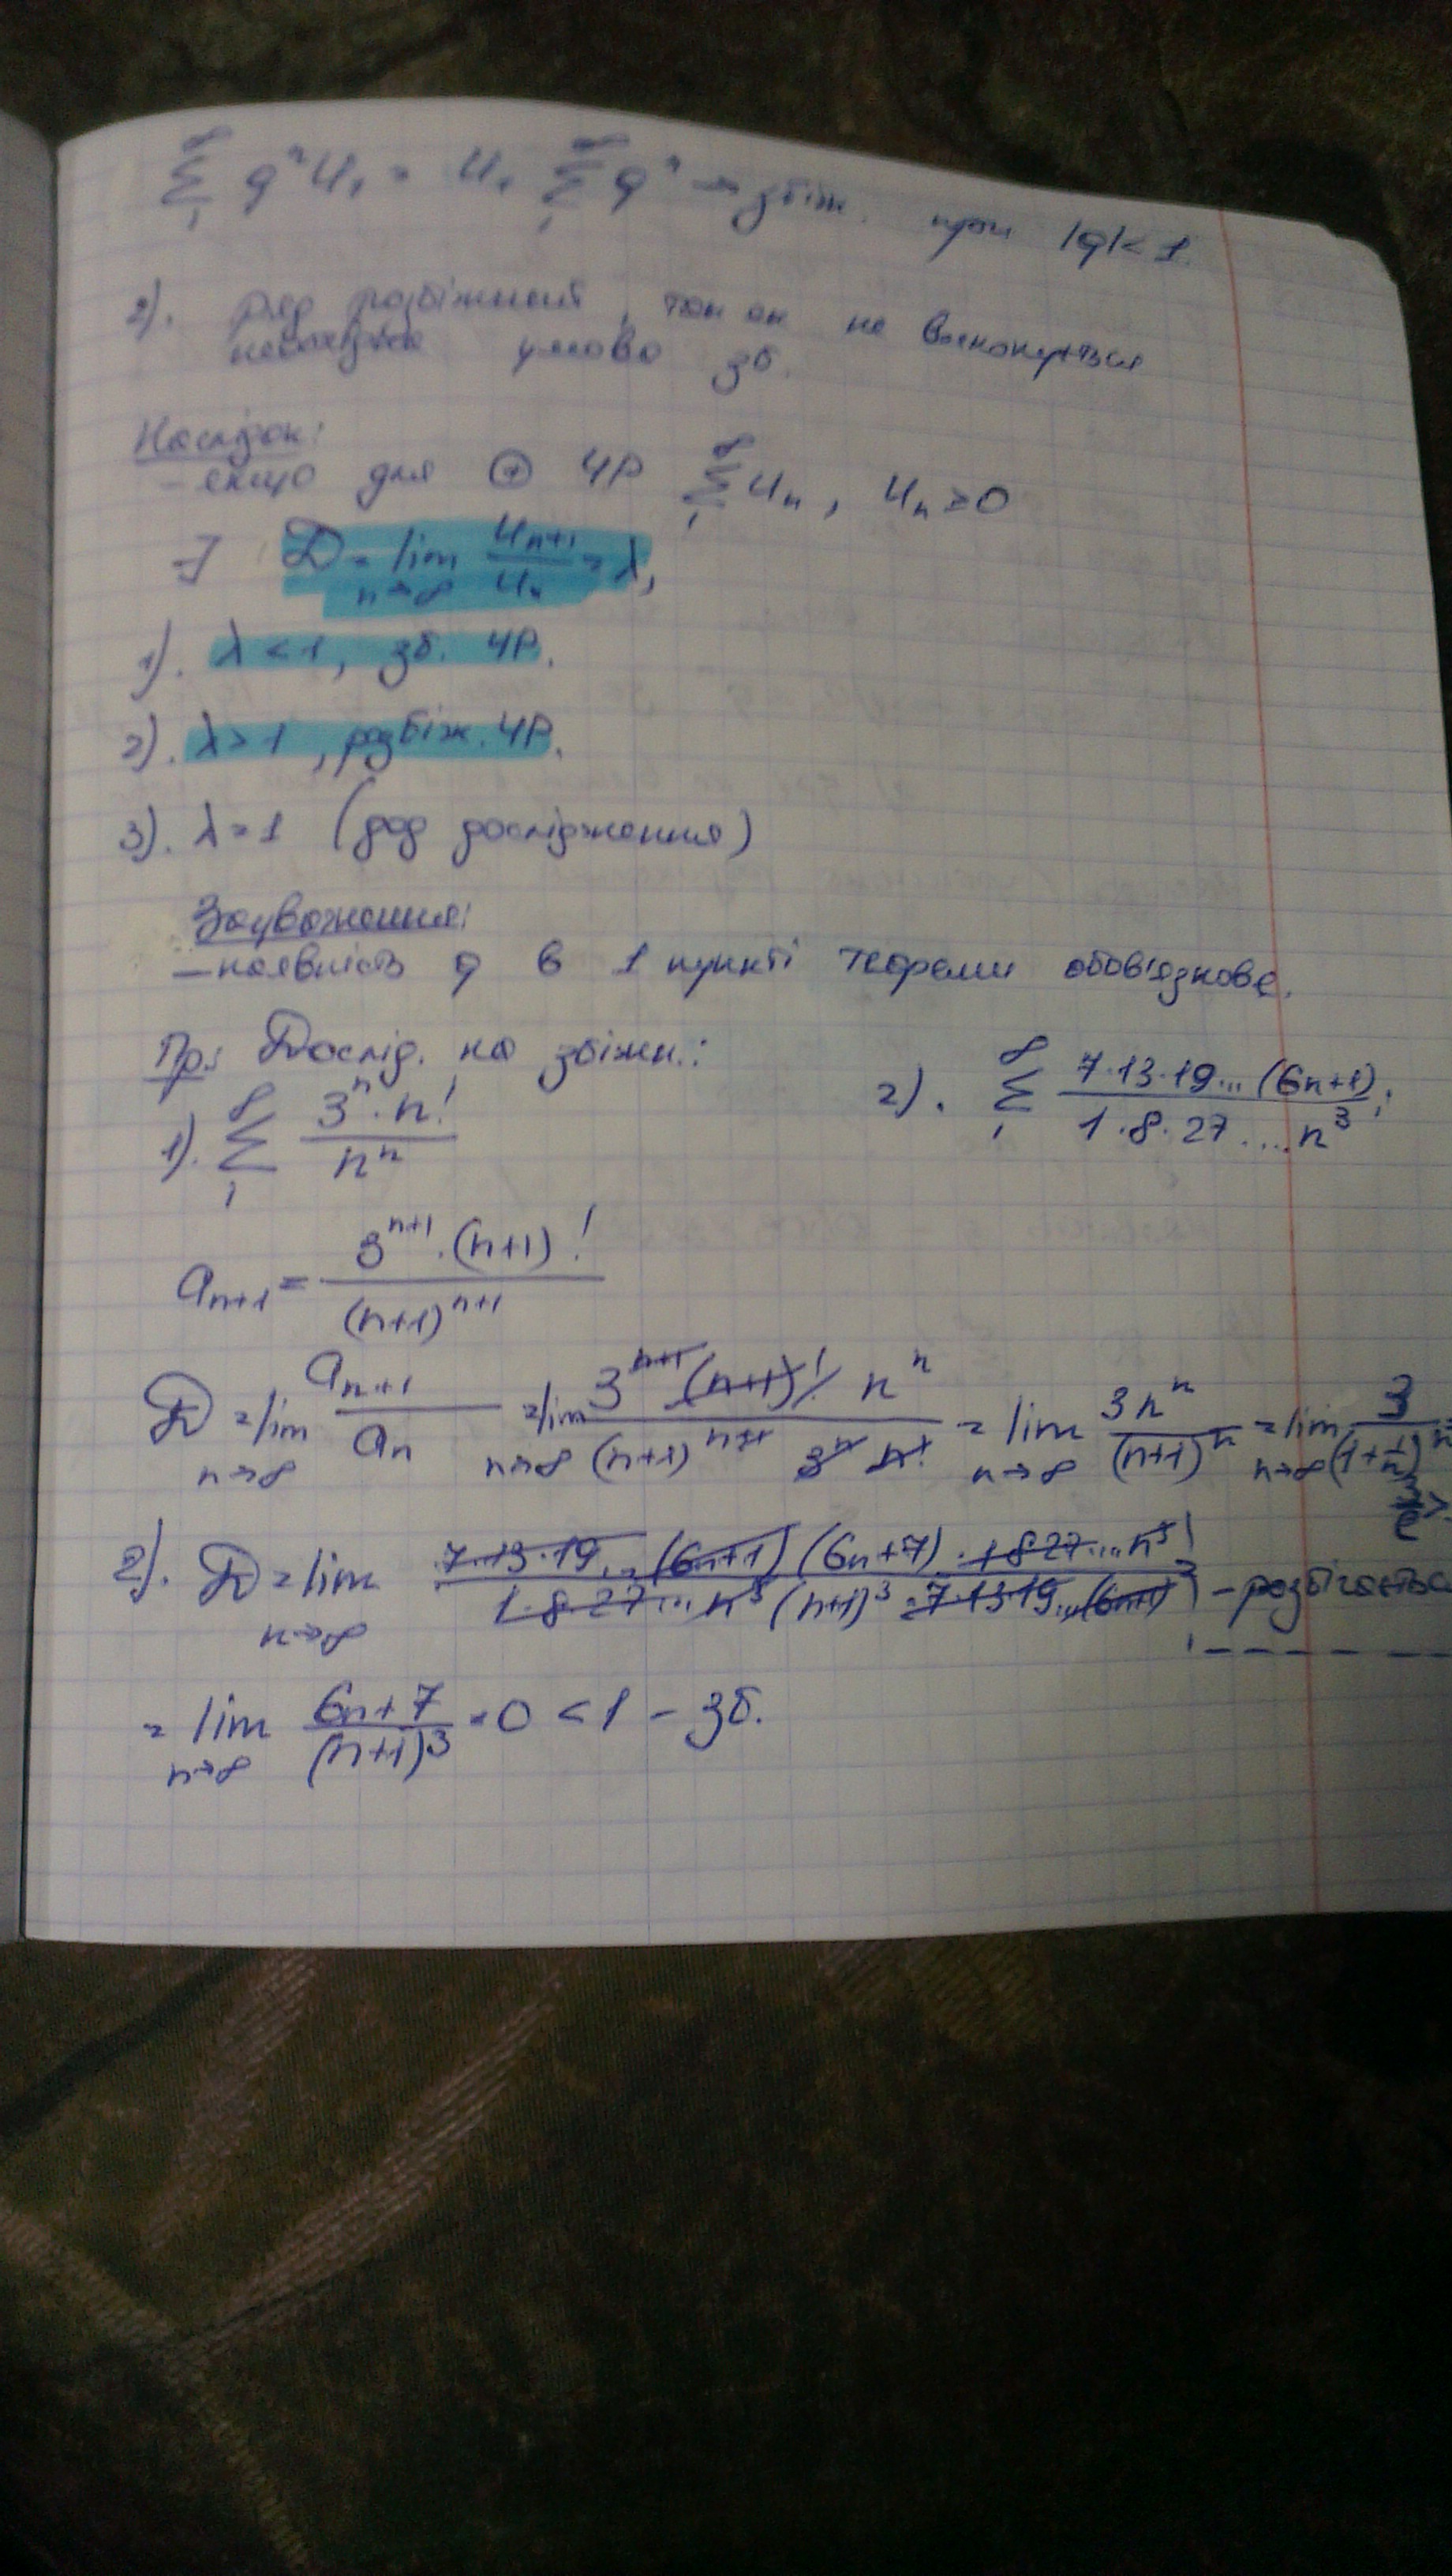 ∞∑1 qⁿ U₁ = U₁ ∞∑1 qⁿ → збіж. при |q| < 1.
2). Ряд розбіжний, так як не виконується
необхідна умова зб.
Наслідок:
- якщо для ⊕ ЧР ∞∑1 Uₙ, Uₙ > 0
∃ D = lim n→∞ Uₙ₊₁/Uₙ = λ,
1). λ < 1, зб. ЧР.
2). λ > 1, розбіж. ЧР.
3). λ = 1 (дод дослідження)
Зауваження:
- наявність q в 1 пункті теореми обов'язкове.
Пр: Дослід. на збіжн.:
1). ∞∑1 3ⁿ · n! / nⁿ 2). ∞∑1 7·13·19...(6n+1) / 1·8·27....n³;
aₙ₊₁ = 3ⁿ⁺¹ · (n+1)! / (n+1)ⁿ⁺¹
D = lim n→∞ aₙ₊₁/aₙ = lim n→∞ 3ⁿ⁺¹ (n+1)! nⁿ / (n+1)ⁿ⁺¹ 3ⁿ n! = lim n→∞ 3nⁿ / (n+1)ⁿ = lim n→∞ 3 / (1+1/n)ⁿ =
3/e >
2). D = lim n→∞ 7·13·19...(6n+1)(6n+7) · 1·8·27...n³ / 1·8·27...n³ (n+1)³ · 7·13·19...(6n+1) =
- розбігається
= lim n→∞ 6n+7 / (n+1)³ = 0 < 1 - зб.